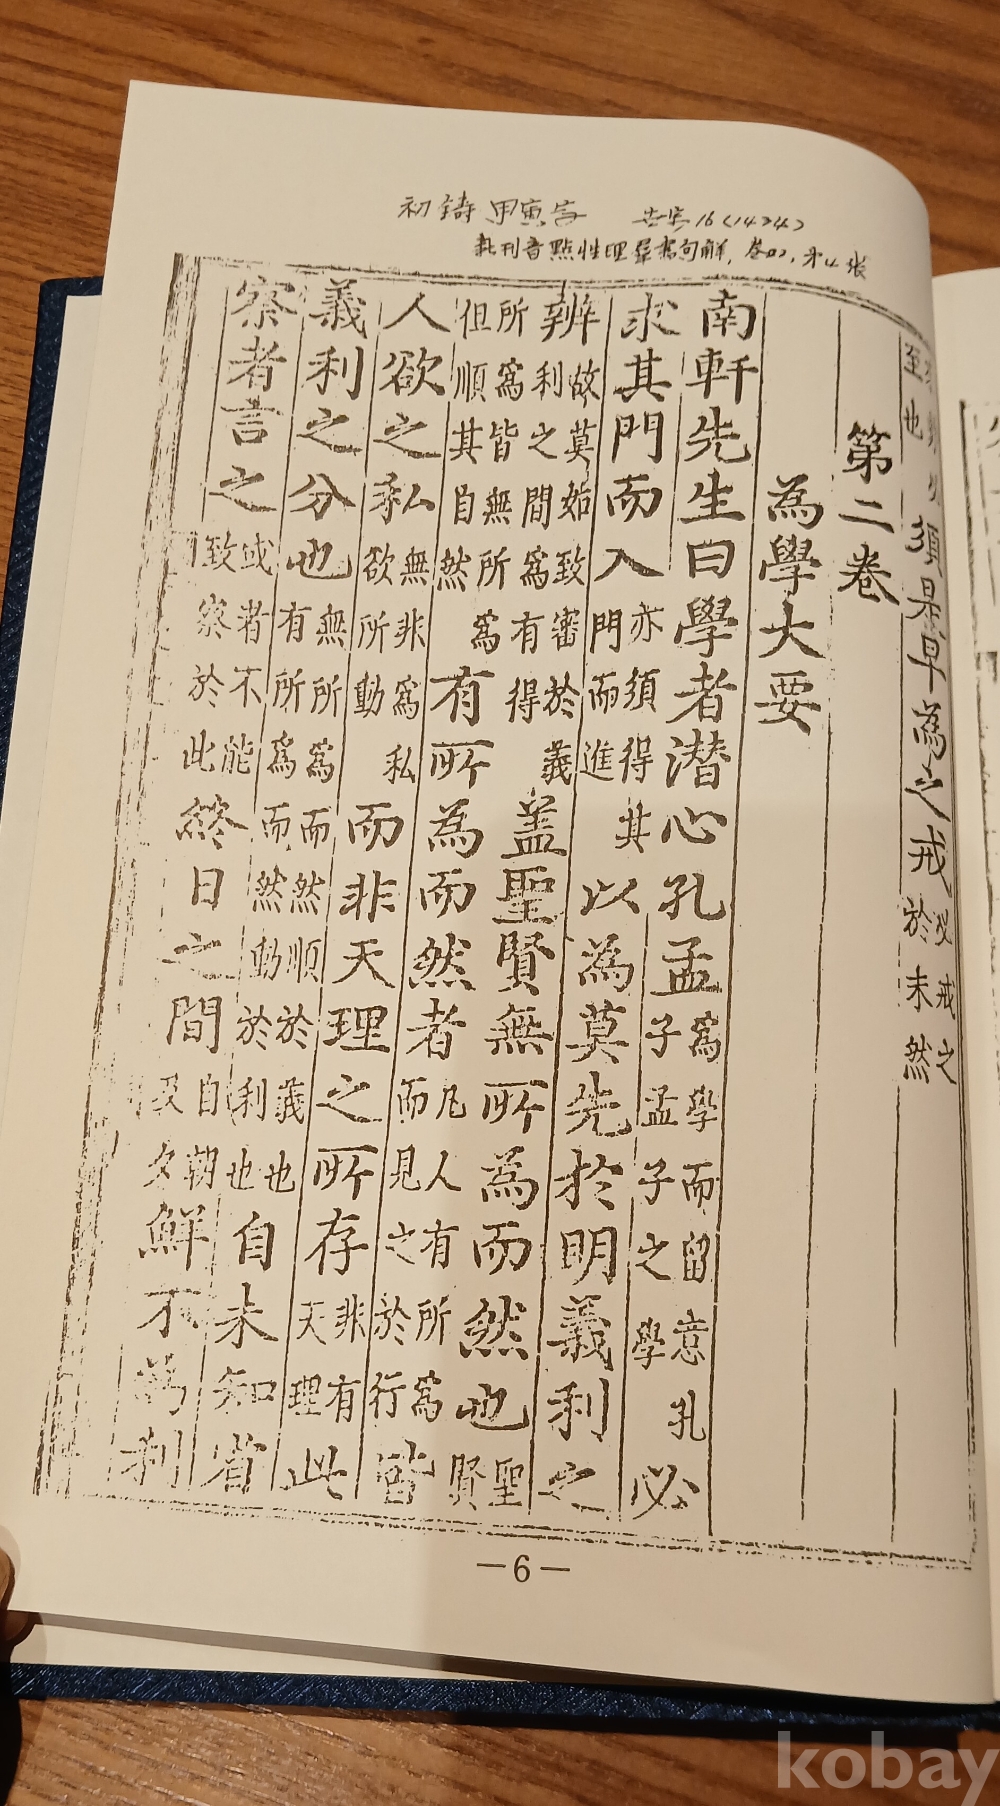 初鑄 甲寅字 世宗16(1434)
刊音點性理羣書句解, 卷02, 第4張
至也 須是早為之戒 必戒之於未然
第二卷
為學大要
南軒先生曰學者潜心孔孟 爲學而留意孔子孟子之學 必
求其門而入 亦須得其門而進 以為莫先於明義利之
辨 故莫始致審於義利之間爲有得 盖聖賢無所為而然也 聖賢
所爲皆無所爲但順其自然 有所為而然者 凡人有所爲而見之於行 皆
人欲之私 無非爲私欲所動 而非天理之所存 非有天理 此
義利之分也 無所爲而然順於義也有所爲而然動於利也 自未知省
察者言之 或者不能致察於此 終日之間 自朝及夕 鮮不為利
—6—
kobay